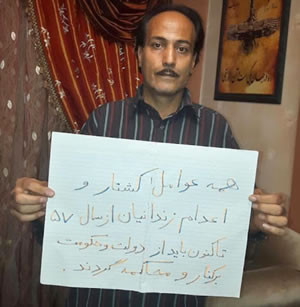 همه عوامل کشتار و
اعدام زندانیان از سال ۵۷
تاکنون باید از دولت و حکومت
برکنار و محاکمه گردند.